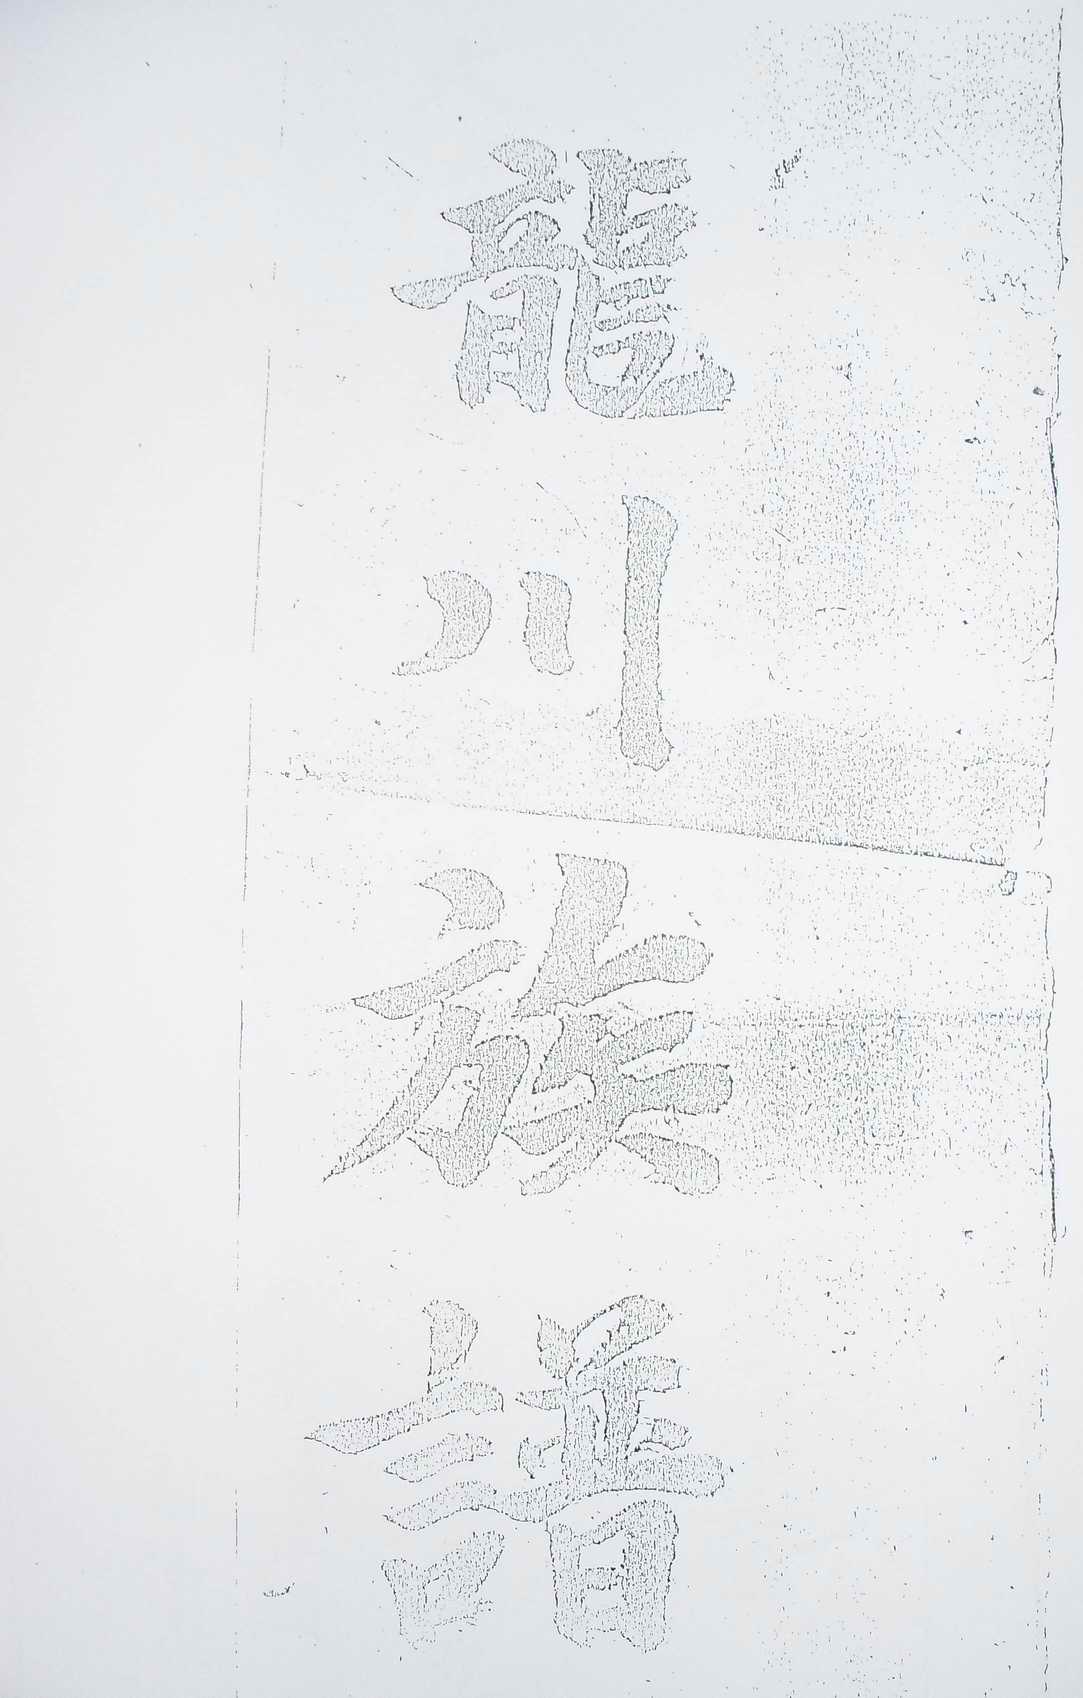 龍川族譜